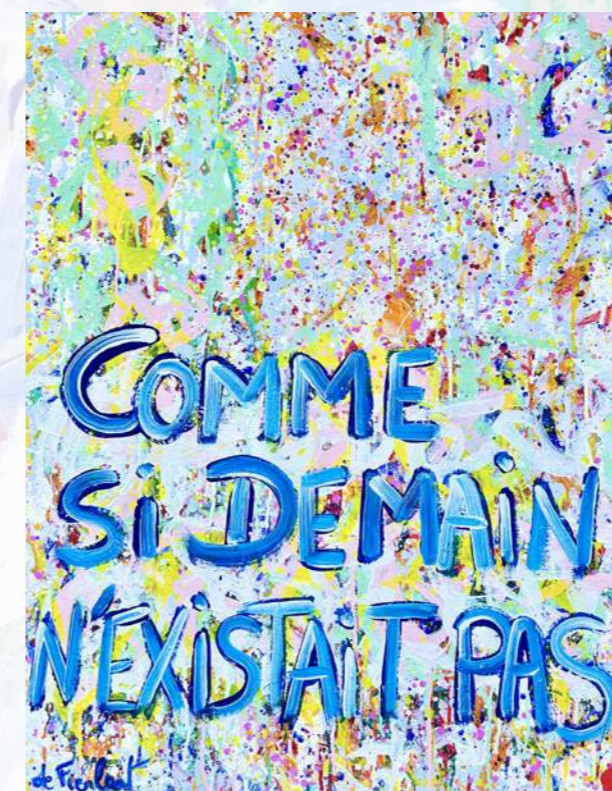 COMME
Si DEMAiN
N'ÉXiSTAiT PAS